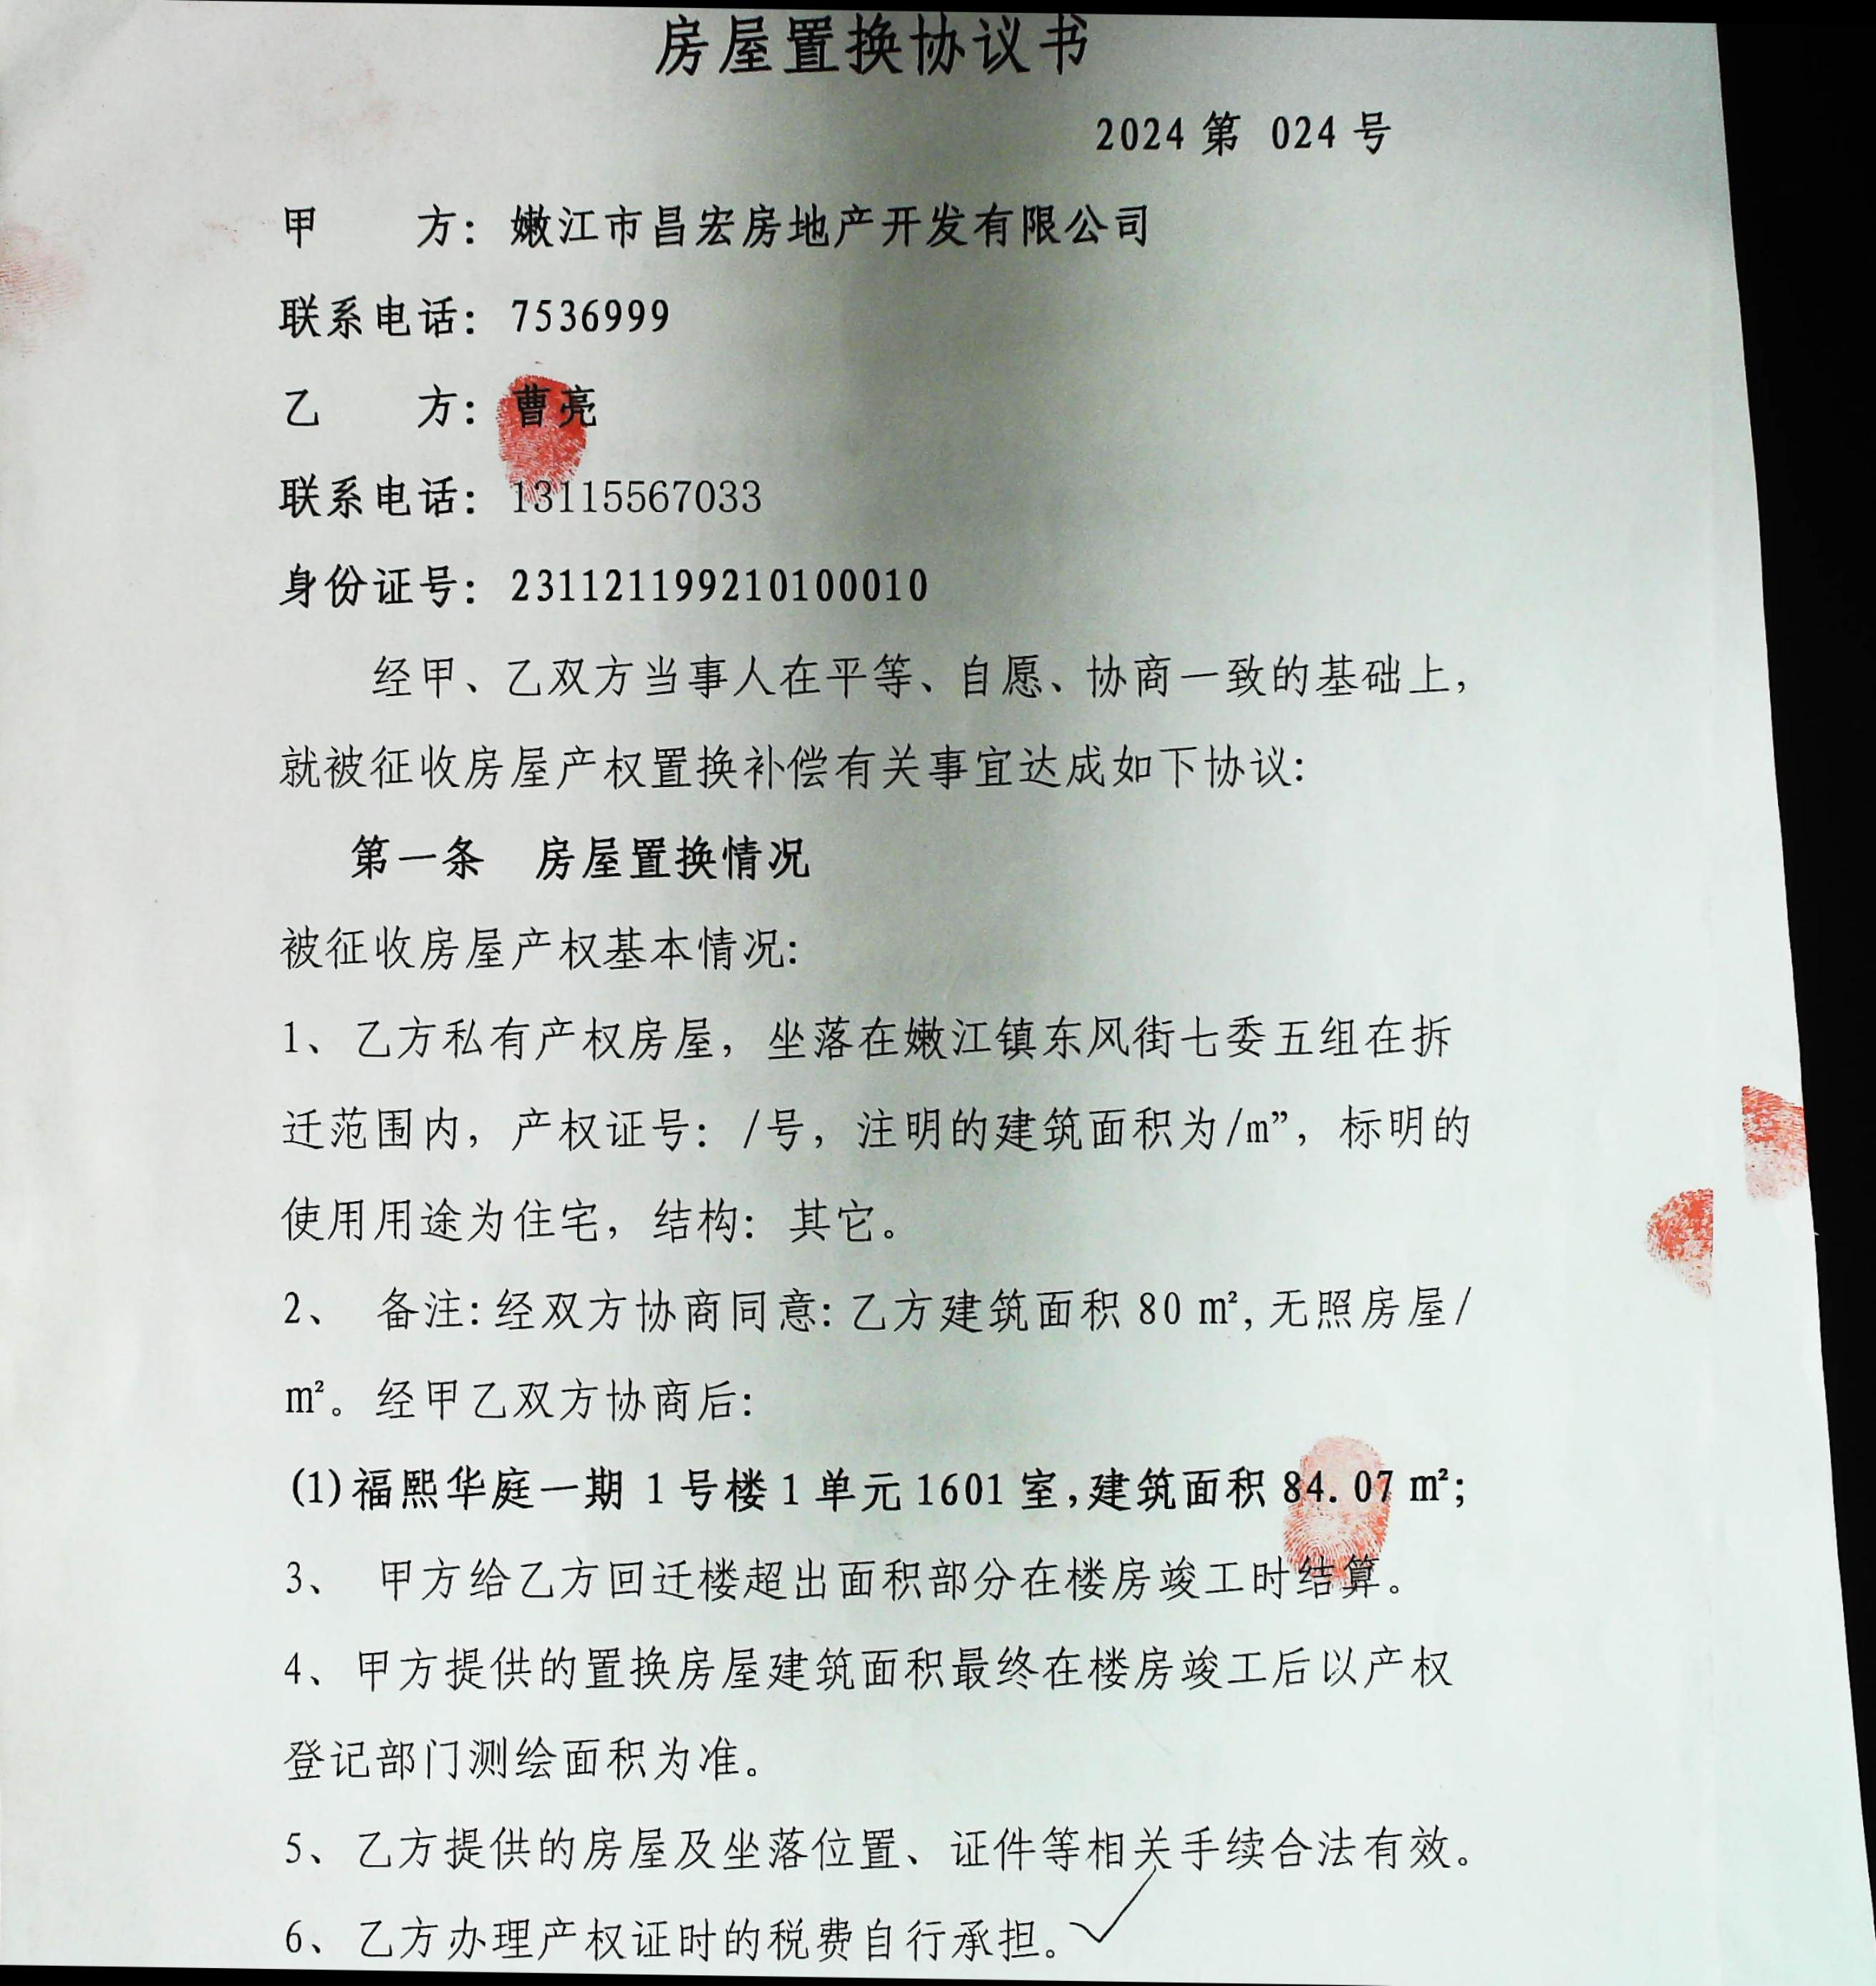 房屋置换协议书
2024 第 024 号
甲 方：嫩江市昌宏房地产开发有限公司
联系电话：7536999
乙 方：曹亮
联系电话：13115567033
身份证号：231121199210100010
经甲、乙双方当事人在平等、自愿、协商一致的基础上，
就被征收房屋产权置换补偿有关事宜达成如下协议:
第一条 房屋置换情况
被征收房屋产权基本情况:
1、乙方私有产权房屋，坐落在嫩江镇东风街七委五组在拆
迁范围内，产权证号：/号，注明的建筑面积为/m”，标明的
使用用途为住宅，结构：其它。
2、 备注:经双方协商同意:乙方建筑面积 80 m²,无照房屋/
m²。经甲乙双方协商后:
(1)福熙华庭一期 1 号楼 1 单元 1601 室,建筑面积 84.07 m²;
3、 甲方给乙方回迁楼超出面积部分在楼房竣工时结算。
4、甲方提供的置换房屋建筑面积最终在楼房竣工后以产权
登记部门测绘面积为准。
5、乙方提供的房屋及坐落位置、证件等相关手续合法有效。
6、乙方办理产权证时的税费自行承担。